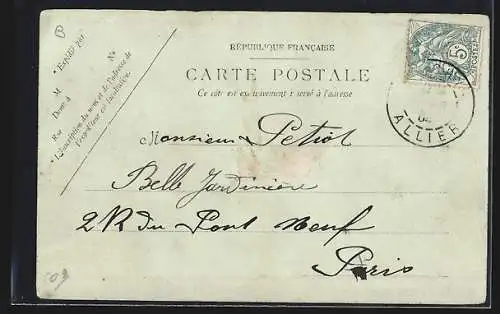 RÉPUBLIQUE FRANÇAISE
CARTE POSTALE
Ce côté est exclusivement réservé à l'adresse
Expédié par
M
Demt à
Rue
No
L'inscription du nom et de l'adresse de
l'expéditeur est facultative.
5c
POSTES
04
ALLIER
Monsieur Petiot
Belle Jardinière
2 R du Pont Neuf
Paris